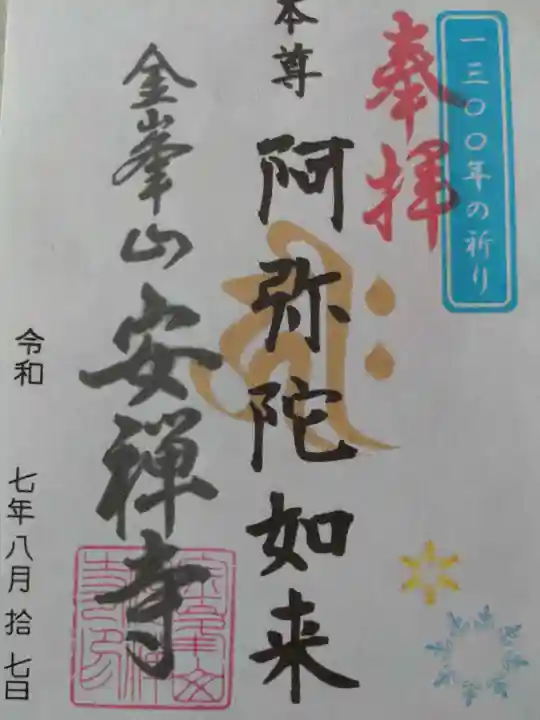 一三〇〇年の祈り
奉拝
本尊
阿弥陀如来
金峯山
安禅寺
令和 七年八月拾七日